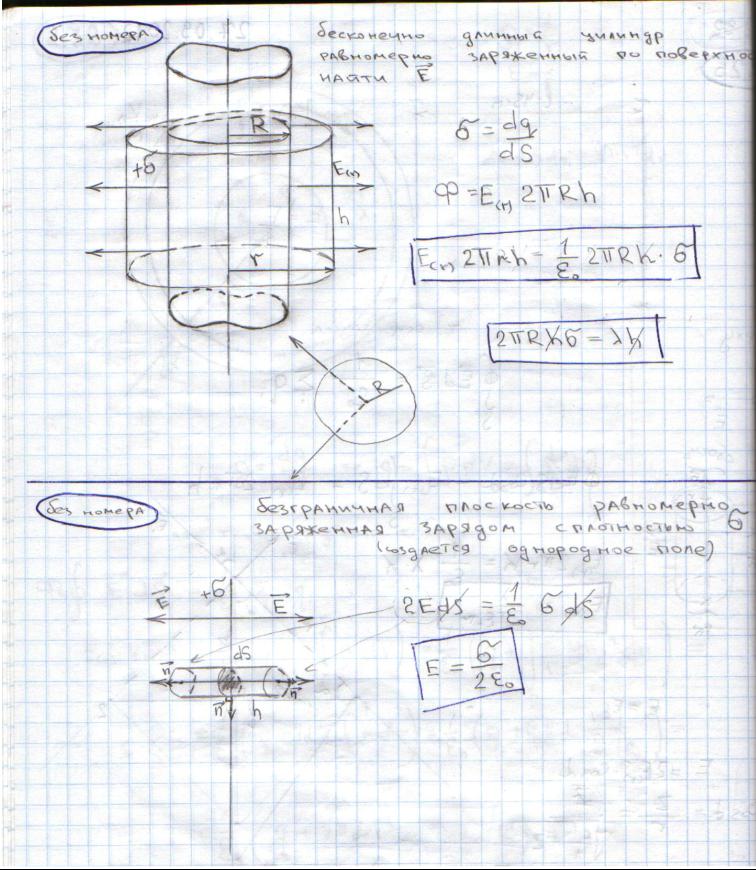 без номера
бесконечно длинный цилиндр
равномерно заряженный по поверхнос
найти E⃗
R
σ = dq/dS
+σ
E(r)
Φ = E(r) 2πRh
h
r
E(r) 2πrh = 1/ε₀ 2πRh · σ
2πRhσ = λh
R
без номера
безграничная плоскость равномерно
заряженная зарядом с плотностью σ
(создается однородное поле)
+σ
E⃗ E⃗
2EdS = 1/ε₀ σ dS
dS
n⃗ n⃗
E = σ/2ε₀
n⃗ h